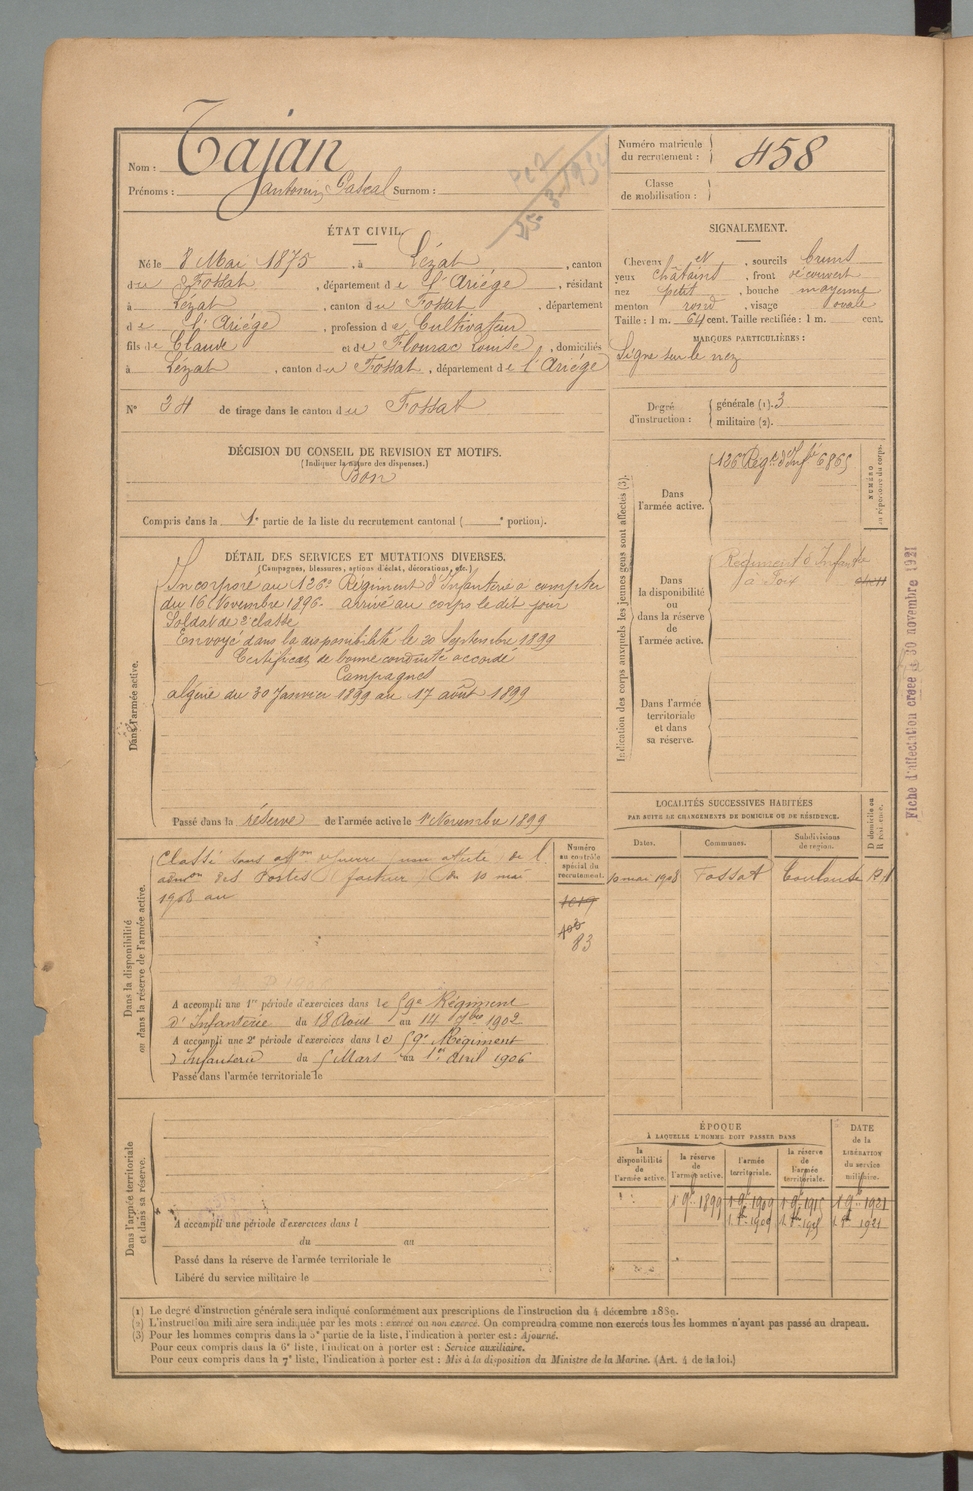 Nom : Tajan
Prénoms : Antonin Pascal Surnom :
Numéro matricule du recrutement : 458
Classe de mobilisation :
25-3-1934
ÉTAT CIVIL.
Né le 8 Mai 1875, à Lézat, canton
du Fossat, département de l'Ariége, résidant
à Lézat, canton du Fossat, département
de l'Ariége, profession de Cultivateur
fils de Claude et de Flourac Louise, domiciliés
à Lézat, canton du Fossat, département de l'Ariége
N° 34 de tirage dans le canton du Fossat
SIGNALEMENT.
Cheveux et, sourcils bruns
yeux châtains, front découvert
nez petit, bouche moyenne
menton rond, visage ovale
Taille : 1 m. 64 cent. Taille rectifiée : 1 m. cent.
MARQUES PARTICULIÈRES :
Signe sur le nez
Degré d'instruction : générale (1). 3
militaire (2).
DÉCISION DU CONSEIL DE REVISION ET MOTIFS.
(Indiquer la nature des dispenses.)
Bon
Compris dans la 1e partie de la liste du recrutement cantonal ( e portion).
DÉTAIL DES SERVICES ET MUTATIONS DIVERSES.
(Campagnes, blessures, actions d'éclat, décorations, etc.)
Dans l'armée active.
Incorporé au 126e Régiment d'Infanterie à compter
du 16 Novembre 1896. arrivé au corps le dit jour
Soldat de 2e classe
Envoyé dans la disponibilité le 20 Septembre 1899
Certificat de bonne conduite accordé
Campagnes
algérie du 30 Janvier 1899 au 17 août 1899
Passé dans la réserve de l'armée active le 1er Novembre 1899
Indication des corps auxquels les jeunes gens sont affectés (3).
NUMÉRO au répertoire du corps.
Dans l'armée active.
126e Régt d'Infie 6865
Dans la disponibilité ou dans la réserve de l'armée active.
Régiment d'Infanterie
à Foix
Dans l'armée territoriale et dans sa réserve.
Fiche d'affectation créée le 30 novembre 1921
LOCALITÉS SUCCESSIVES HABITÉES
PAR SUITE DE CHANGEMENTS DE DOMICILE OU DE RÉSIDENCE.
Dates. Communes. Subdivisions de région. D domicile ou R résidence.
10 mai 1908 Fossat Toulouse
Dans la disponibilité ou dans la réserve de l'armée active.
Numéro au contrôle spécial du recrutement.
Classé sous aff on non affecté de l'
admon des Postes (facteur) du 10 mai
1908 au
1019
83
A accompli une 1re période d'exercices dans le 59e Régiment
d'Infanterie du 18 Aout au 14 7bre 1902
A accompli une 2e période d'exercices dans le 59e Régiment
d'Infanterie du 5 Mars au 1er Avril 1906
Passé dans l'armée territoriale le
Dans l'armée territoriale et dans sa réserve.
A accompli une période d'exercices dans l
du au
Passé dans la réserve de l'armée territoriale le
Libéré du service militaire le
ÉPOQUE
À LAQUELLE L'HOMME DOIT PASSER DANS
DATE de la LIBÉRATION du service militaire.
la disponibilité de l'armée active. la réserve de l'armée active. l'armée territoriale. la réserve de l'armée territoriale.
1 9bre 1899 1 9bre 1909 1 9bre 1915 1 9bre 1921
1909 1915 1921
(1) Le degré d'instruction générale sera indiqué conformément aux prescriptions de l'instruction du 4 décembre 1889.
(2) L'instruction militaire sera indiquée par les mots : exercé ou non exercé. On comprendra comme non exercés tous les hommes n'ayant pas passé au drapeau.
(3) Pour les hommes compris dans la 5e partie de la liste, l'indication à porter est : Ajourné.
Pour ceux compris dans la 6e liste, l'indication à porter est : Service auxiliaire.
Pour ceux compris dans la 7e liste, l'indication à porter est : Mis à la disposition du Ministre de la Marine. (Art. 4 de la loi.)